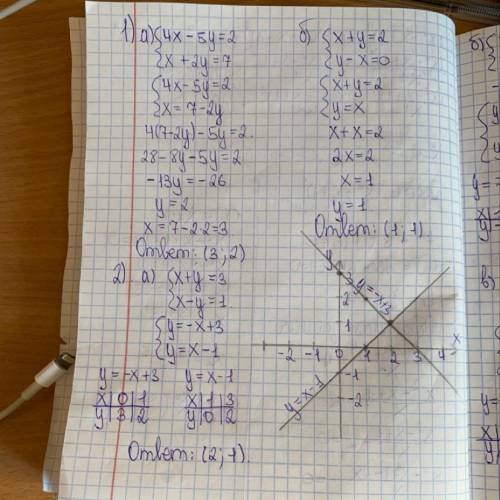 1) а) {4x-5y=2
{x+2y=7
{4x-5y=2
{x=7-2y
4(7-2y)-5y=2.
28-8y-5y=2
-13y=-26
y=2
x=7-2·2=3
Ответ: (3; 2)
б) {x+y=2
{y-x=0
{x+y=2
{y=x
x+x=2
2x=2
x=1
y=1
Ответ: (1; 1).
2) а) {x+y=3
{x-y=1.
{y=-x+3
{y=x-1
y=-x+3 y=x-1
x|0|1 x|1|3
y|3|2 y|0|2
y
3 y=-x+3
2
1
x
-2 -1 0 1 2 3 4
-1
-2
y=x-1
Ответ: (2; 1).
б)
в)